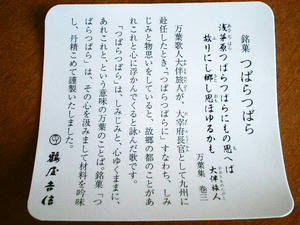 銘菓 つばらつばら
浅茅原つばらつばらにもの思へは
故りにし郷し思ほゆるかも
大伴旅人
万葉集 巻三
万葉歌人大伴旅人が、大宰府長官として九州に
赴任したとき、「つばらつばらに」すなわち、しみ
じみと物思いをしていると、故郷の都のことがあ
れこれと心に浮かんでくると詠んだ歌です。
「つばらつばら」は、しみじみと、心ゆくままに、
あれこれと、という意味の万葉のことば。銘菓「つ
ばらつばら」は、その心を汲みまして材料を吟味
し、丹精こめて謹製いたしました。
鶴屋吉信